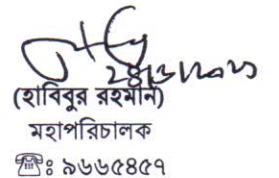 (হাবিবুর রহমান)
মহাপরিচালক
☎ঃ ৯৬৬৫৪৫৭